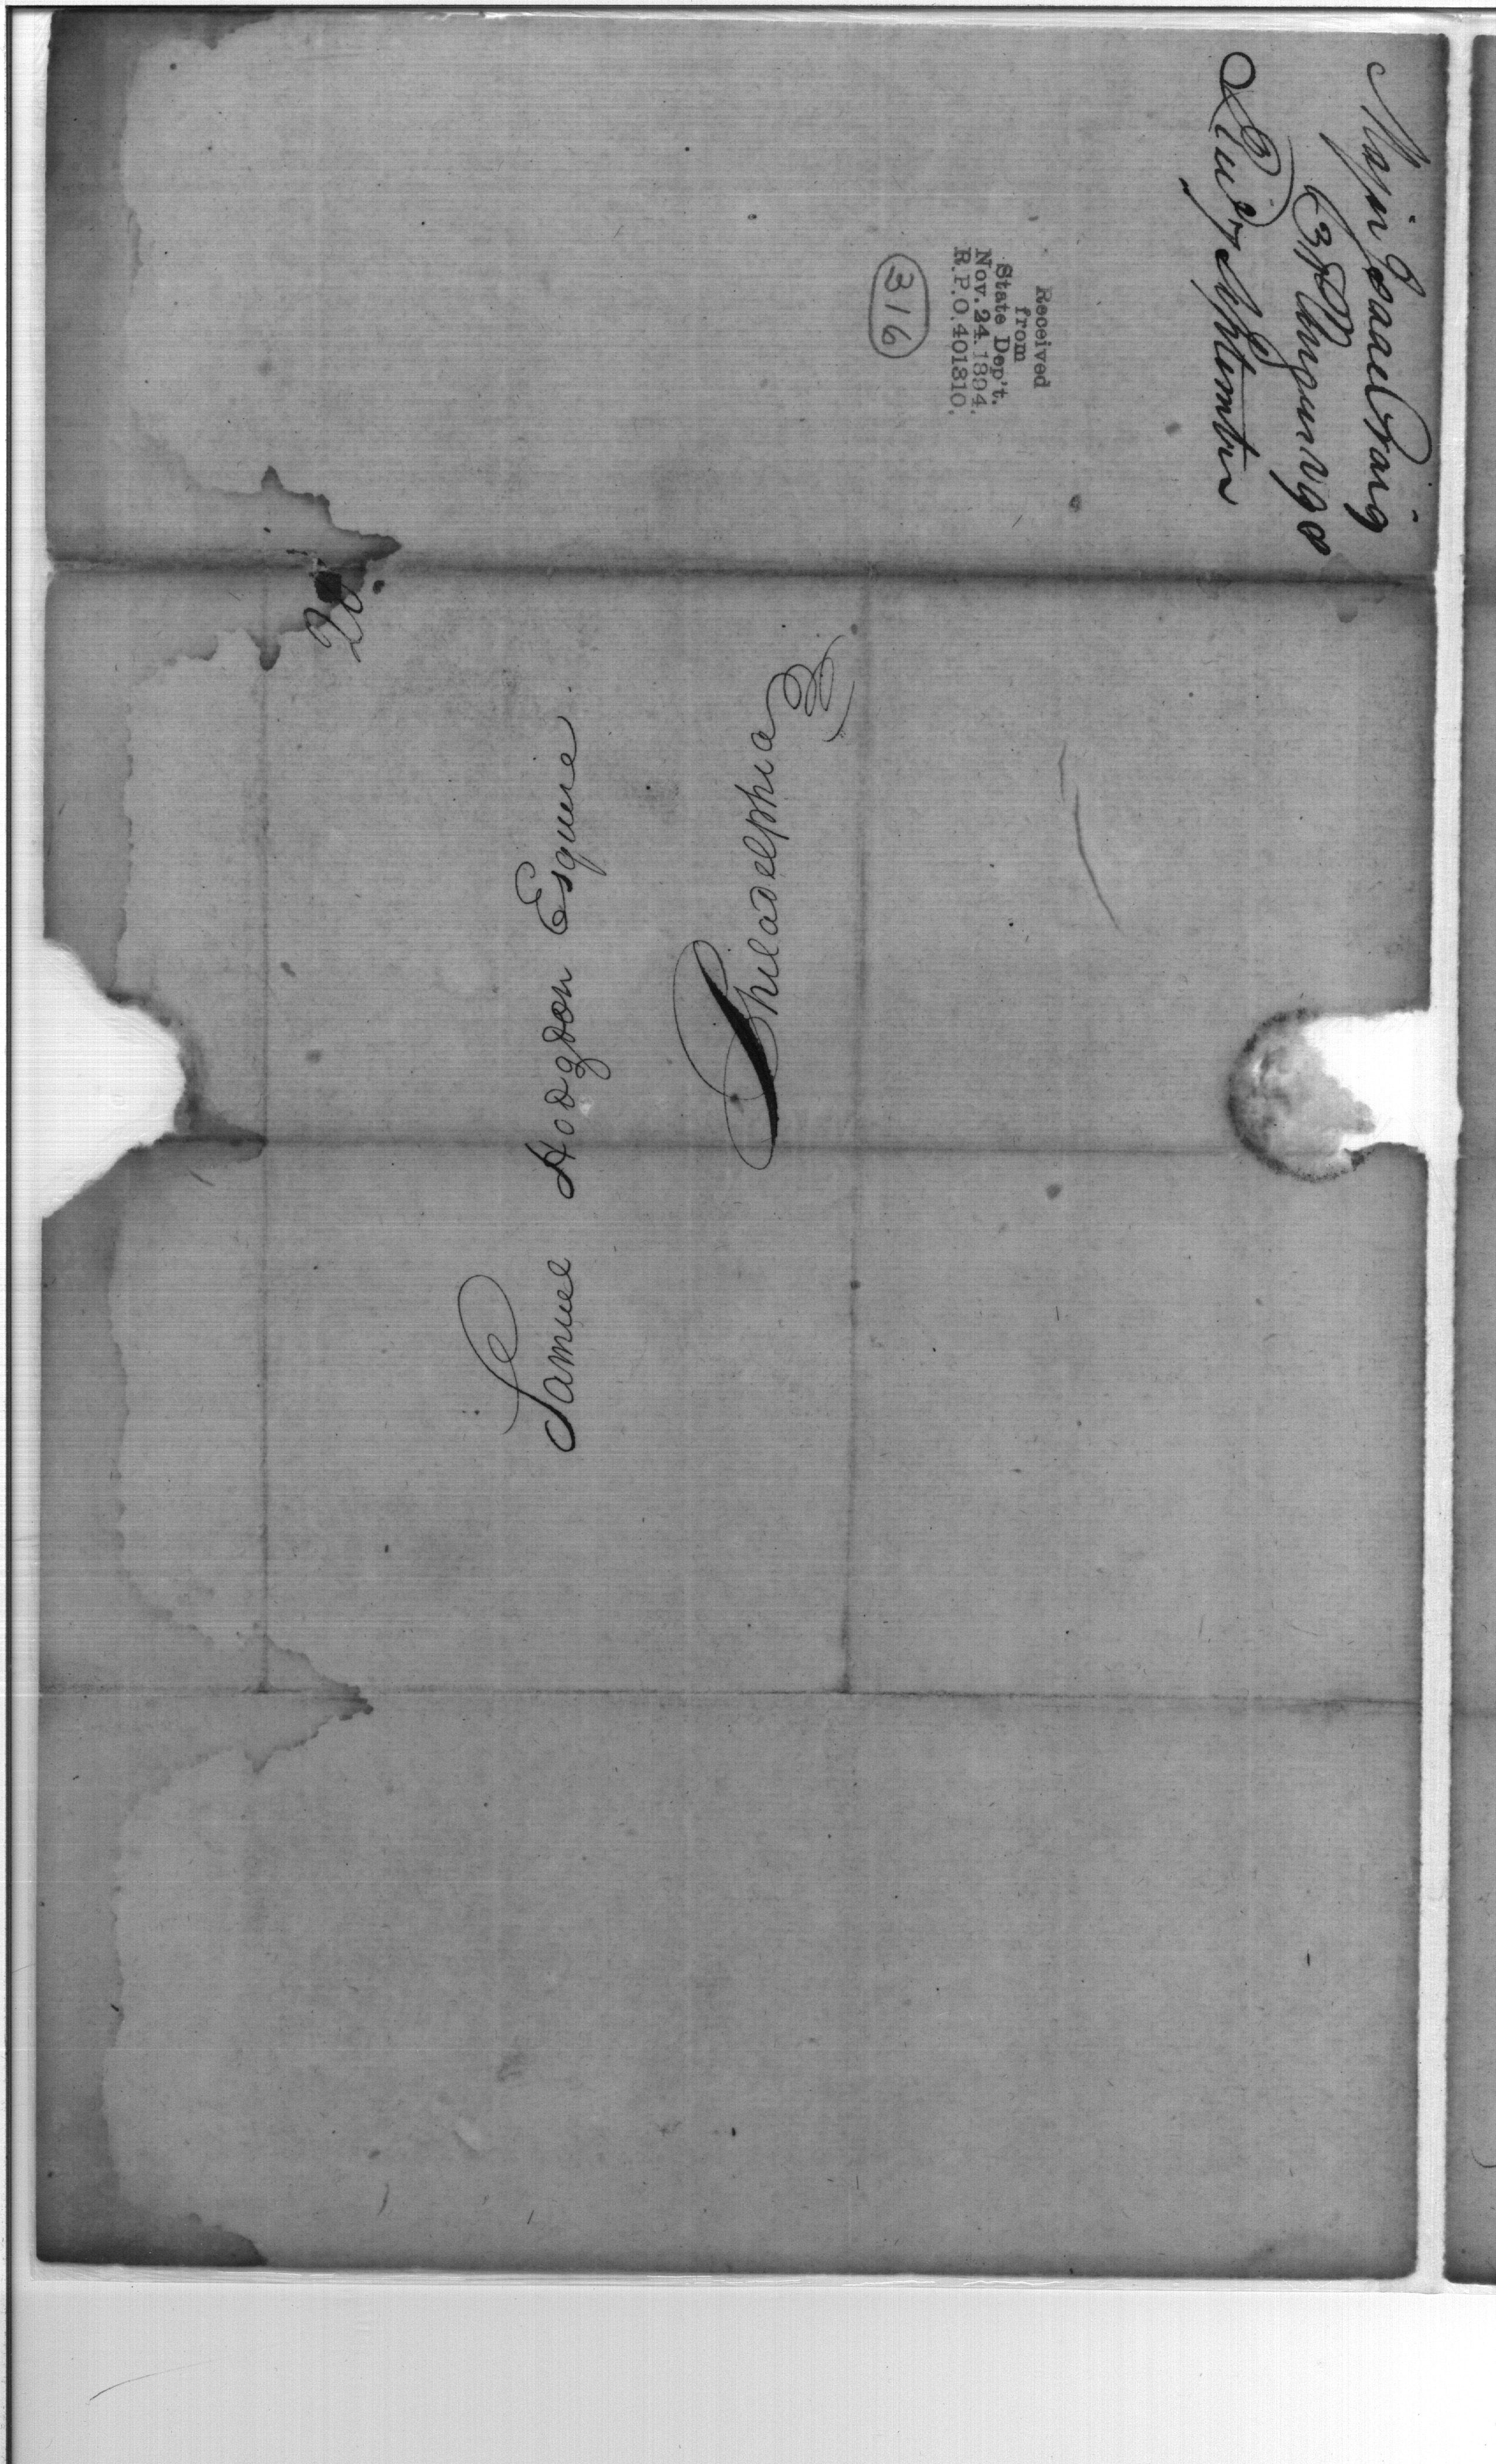 Major Isaac Craig
3d August 98
Recd 7 September
Received
from
State Dep't.
Nov. 24. 1894.
R.P.O. 401810.
316
20
Samuel Hodgdon Esquire
Philadelphia